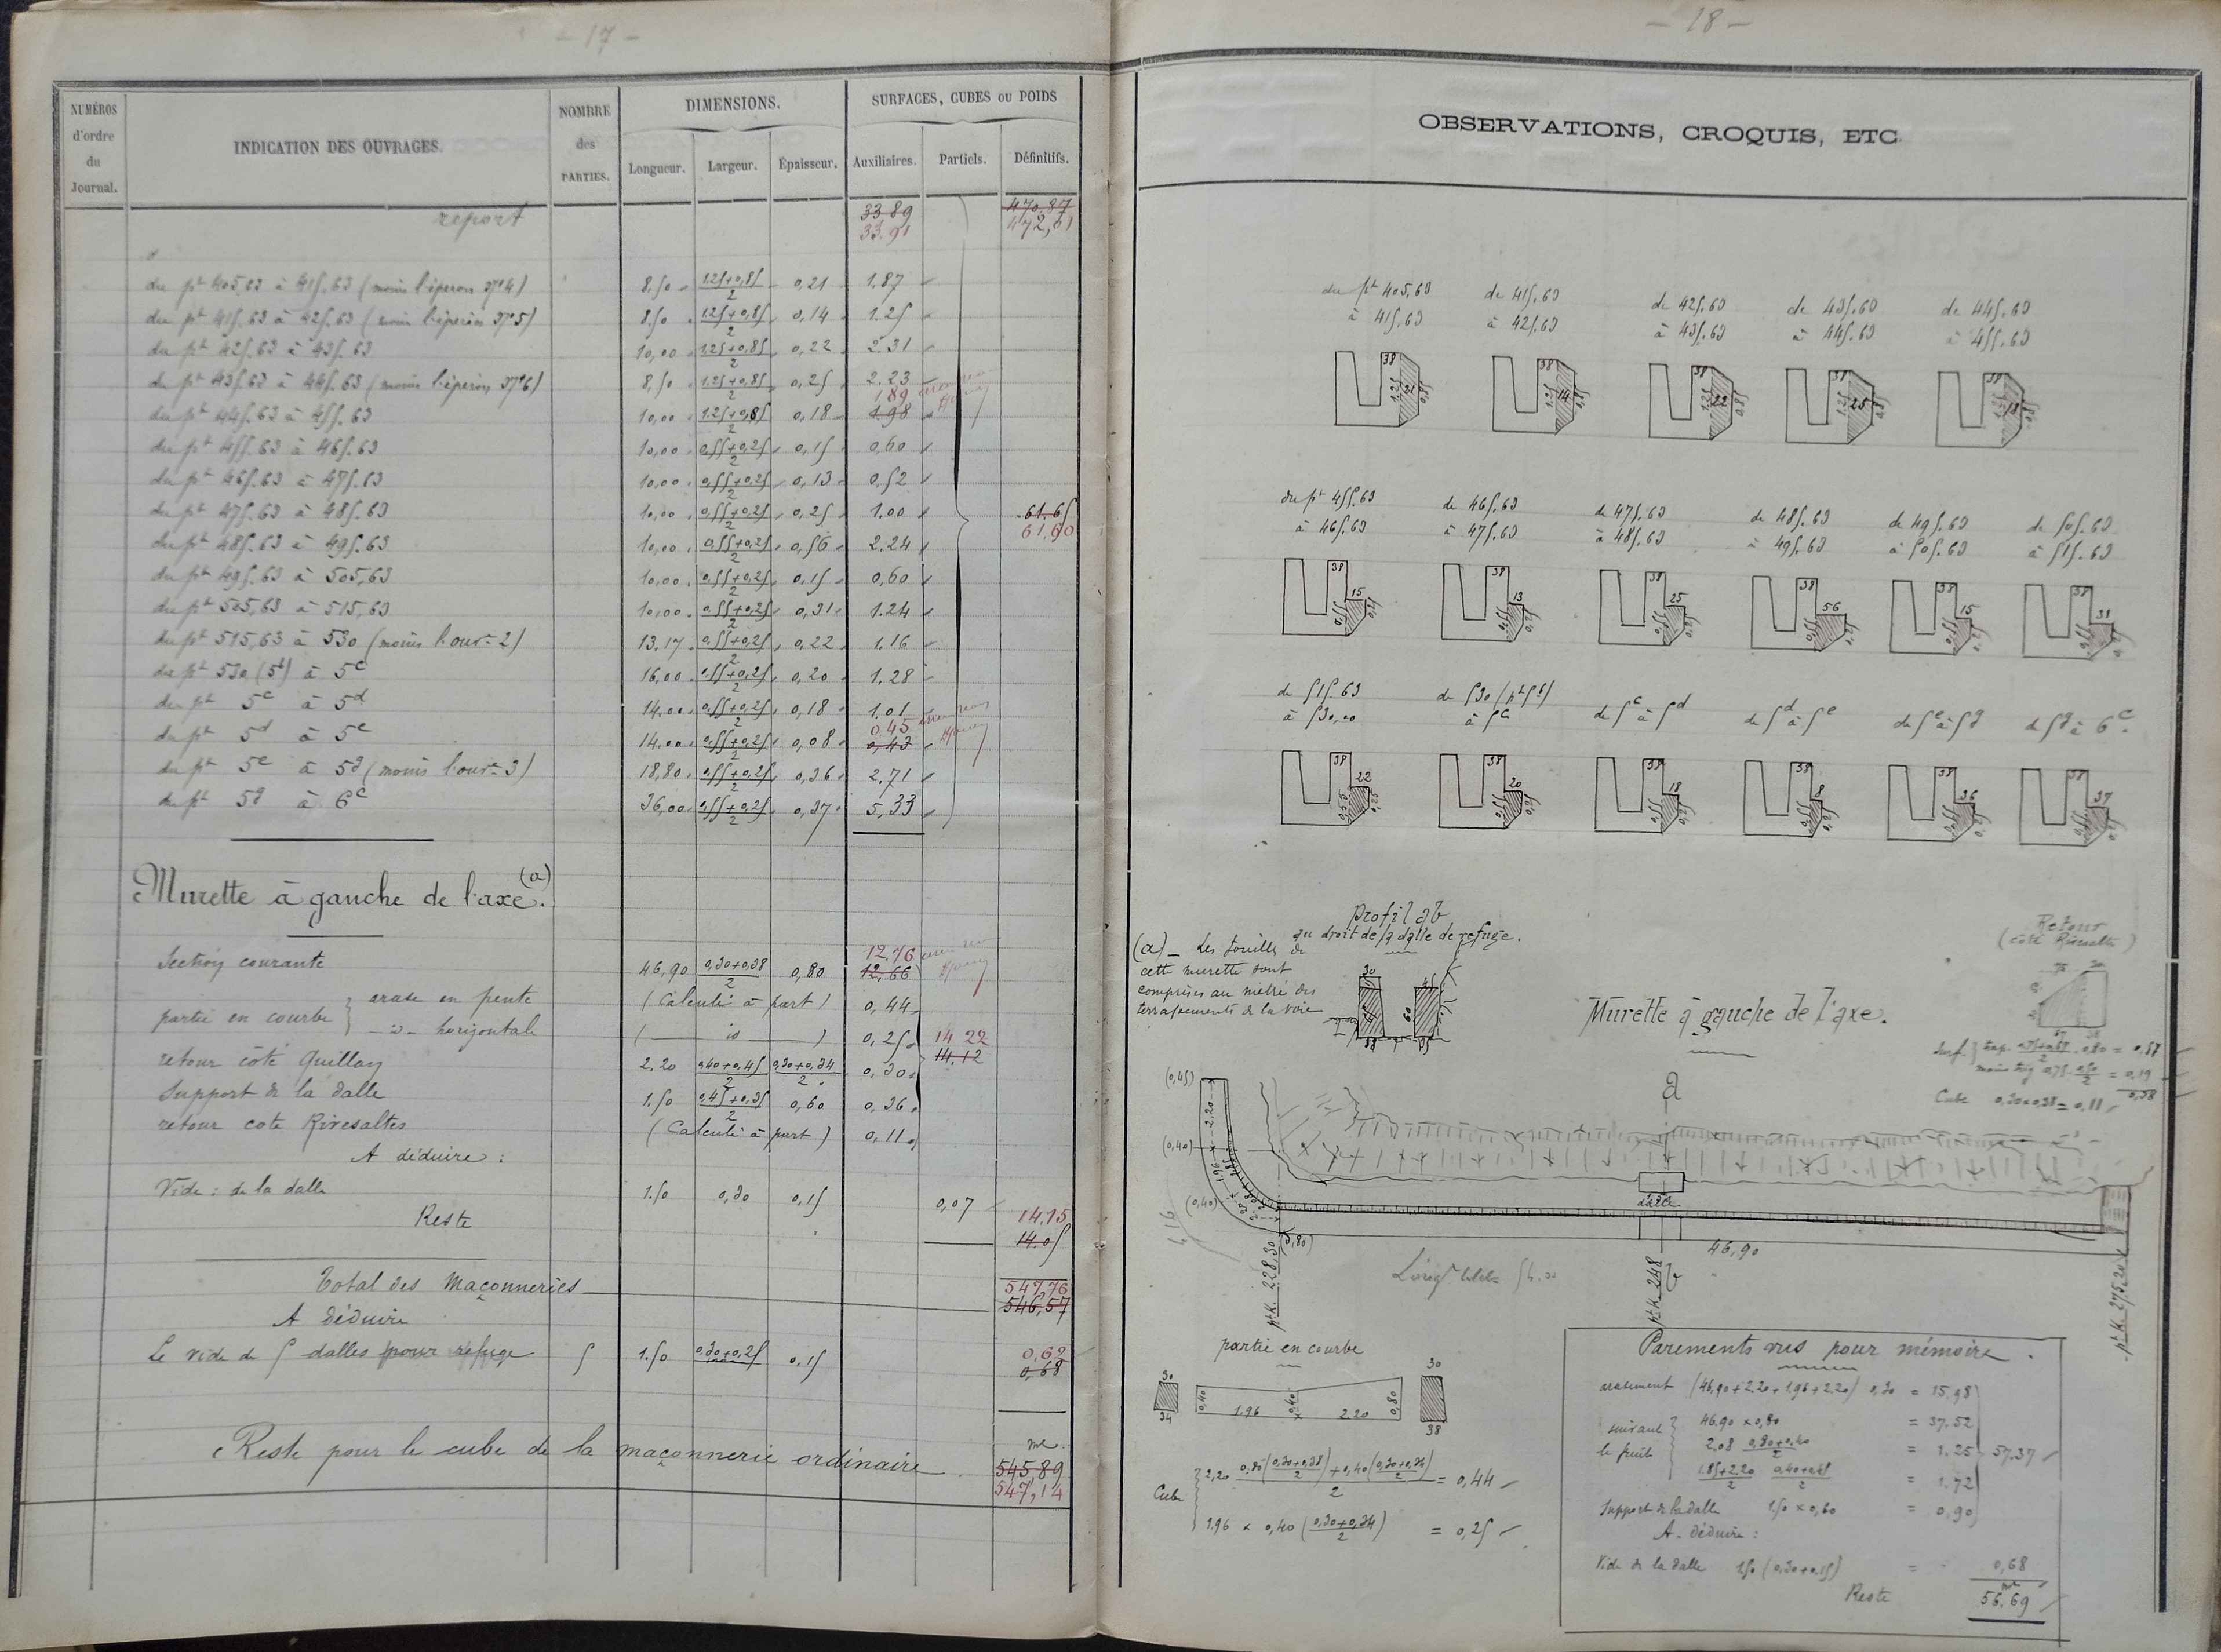 - 17 -
NUMÉROS d'ordre du Journal.
INDICATION DES OUVRAGES.
NOMBRE des PARTIES.
DIMENSIONS.
Longueur. Largeur. Épaisseur.
SURFACES, CUBES OU POIDS
Auxiliaires. Partiels. Définitifs.
report 33.89 470,87
33.91 472,61
du pt 405,63 à 415.63 (moins l'éperon No 4) 8,50 (1.25+0,85)/2 0,21 1.87
du pt 415.63 à 425.63 (moins l'éperon No 5) 8.50 (1.25+0,85)/2 0,14 1.25
du pt 425.63 à 435.63 10,00 (1.25+0,85)/2 0,22 2.31
du pt 435.63 à 445.63 (moins l'éperon No 6) 8,50 (1.25+0,85)/2 0,25 2.23
1.89
du pt 445.63 à 455.63 10,00 (1.25+0,85)/2 0,18 1.98
du pt 455.63 à 465.63 10,00 (0,55+0,25)/2 0,15 0,60
du pt 465.63 à 475.63 10,00 (0,55+0,25)/2 0,13 0,52
du pt 475.63 à 485.63 10,00 (0,55+0,25)/2 0,25 1.00 61.65
61,60
du pt 485.63 à 495.63 10,00 (0,55+0,25)/2 0,56 2.24
du pt 495.63 à 505,63 10,00 (0,55+0,25)/2 0,15 0,60
du pt 505,63 à 515,63 10,00 (0,55+0,25)/2 0,31 1.24
du pt 515,63 à 530 (moins l'ouvr 2) 13.17 (0,55+0,25)/2 0,22 1,16
du pt 530 (5b) à 5c 16,00 (0,55+0,25)/2 0,20 1.28
du pt 5c à 5d 14,00 (0,55+0,25)/2 0,18 1.01
0.45
du pt 5d à 5e 14,00 (0,55+0,25)/2 0,08 0,43
du pt 5e à 5g (moins l'ouvr 3) 18,80 (0,55+0,25)/2 0,36 2.71
du pt 5g à 6c 36,00 (0,55+0,25)/2 0,37 5,33
Murette à gauche de l'axe. (a)
12,76
Section courante 46,90 (0,30+0,38)/2 0,80 12,66
partie en courbe } arase en pente (Calculé à part) 0,44
- id - horizontale ( id ) 0,25 14 22
14,12
retour côté Quillan 2.20 (0,40+0,45)/2 (0,30+0,34)/2 0,30
Support de la dalle 1.50 (0,45+0,35)/2 0,60 0,36
retour coté Rivesaltes (Calculé à part) 0,11
A déduire :
Vide : de la dalle 1.50 0,30 0,15 0,07
Reste 14,15
14.05
Total des maçonneries 547,76
546,57
A déduire
Le vide de 5 dalles pour refuge 5 1.50 0,30+0,25 0,15 0,62
0,68
Reste pour le cube de la maçonnerie ordinaire. mc.
545,89
547,14
- 18 -
OBSERVATIONS, CROQUIS, ETC.
du pt 405,63 à 415,63
de 415,63 à 425,63
de 425,63 à 435,63
de 435,63 à 445,63
de 445,63 à 455,63
38 21 1.25 0,85
38 14 1.25 0,85
38 22 1.25 0,85
38 25 1.25 0,85
38 18 1.25 0,85
du pt 455,63 à 465,63
de 465,63 à 475,63
de 475,63 à 485,63
de 485,63 à 495,63
de 495,63 à 505,63
de 505,63 à 515,63
38 15 0,55 0,25
38 13 0,55 0,25
38 25 0,55 0,25
38 56 0,55 0,25
38 15 0,55 0,25
38 31 0,55 0,25
de 515.63 à 530,00
de 530 (pt 5b) à 5c
de 5c à 5d
de 5d à 5e
de 5e à 5g
de 5g à 6c
38 22 0,55 0,25
38 20 0,55 0,25
38 18 0,55 0,25
38 8 0,55 0,25
38 36 0,55 0,25
38 37 0,55 0,25
(a) - Les fouilles de
cette murette sont
comprises au métré des
terrassements de la voie
Profil ab
au droit de la dalle de refuge.
30 45
60
38 35
Murette à gauche de l'axe.
Retour
(côté Rivesaltes)
Surf. { trap. (0,75+0,68)/2 . 0,80 = 0,57
moins trig 0,75 . 0,50/2 = 0,19
0,38
Cube 0,30×0,38 = 0,11
a
(0,45)
2,20
(0,40)
1.96 1.85
(0,40)
(0,80)
dalle
46,90
4,16
Long. totale 54.00
pt K. 228.30
pt K. 248
pt K. 275.20
partie en courbe
30 30
0,40 0,40 0,80
34 1.96 2.20 38
Cube { 2,20 (0.80((0,30+0,38)/2) + 0,40((0,30+0,34)/2))/2 = 0,44
1.96 × 0,40 ((0,30+0,34)/2) = 0,25
Parements vus pour mémoire.
arasement (46,90+2.20+1.96+2.20) 0,30 = 15,98
suivant le fruit { 46.90 × 0,80 = 37.52
2,08 (0,80+0,40)/2 = 1.25 57.37
(1.85+2.20)/2 (0,40+0,45)/2 = 1.72
Support de la dalle 1.50 × 0,60 = 0,90
A déduire :
Vide de la dalle 1.50 (0,30+0,15) = 0,68
Reste 56.69